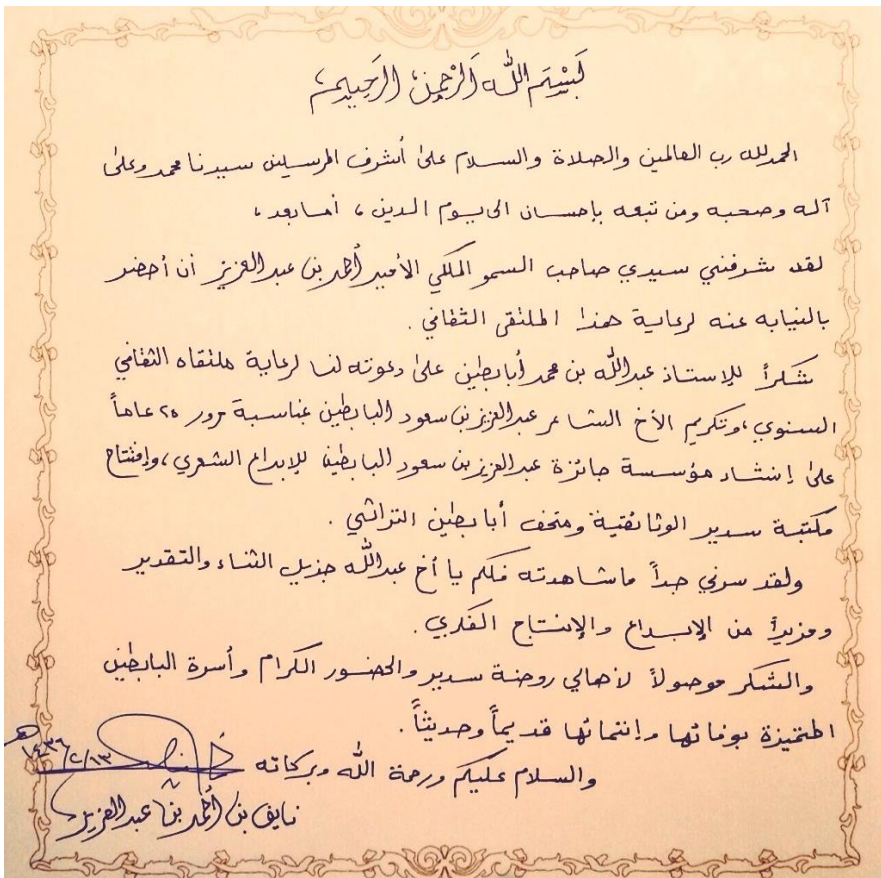 بسم الله الرحمن الرحيم
الحمد لله رب العالمين والصلاة والسلام على أشرف المرسلين سيدنا محمد وعلى
آله وصحبه ومن تبعه بإحسان الى يوم الدين، أما بعد،
لقد شرفني سيدي صاحب السمو الملكي الأمير أحمد بن عبدالعزيز أن أحضر
بالنيابه عنه لرعاية هذا الملتقى الثقافي.
شكراً للإستاذ عبدالله بن محمد أبابطين على دعوته لنا لرعاية ملتقاه الثقافي
السنوي، وتكريم الأخ الشاعر عبدالعزيز بن سعود البابطين بمناسبة مرور ٢٥ عاماً
على إنشاء مؤسسة جائزة عبدالعزيز بن سعود البابطين للإبداع الشعري، وإفتتاح
مكتبة سدير الوثائقية ومتحف أبابطين التراثي.
ولقد سرني جداً ماشاهدته فلكم يا أخ عبدالله جزيل الثناء والتقدير
ومزيداً من الإبداع والإنتاج الفكري.
والشكر موصولاً لأهالي روضة سدير والحضور الكرام وأسرة البابطين
المتميزة بوفائها وإنتمائها قديماً وحديثاً.
والسلام عليكم ورحمة الله وبركاته
١٤٣٦/٢/١٣هـ
نايف بن أحمد بن عبدالعزيز